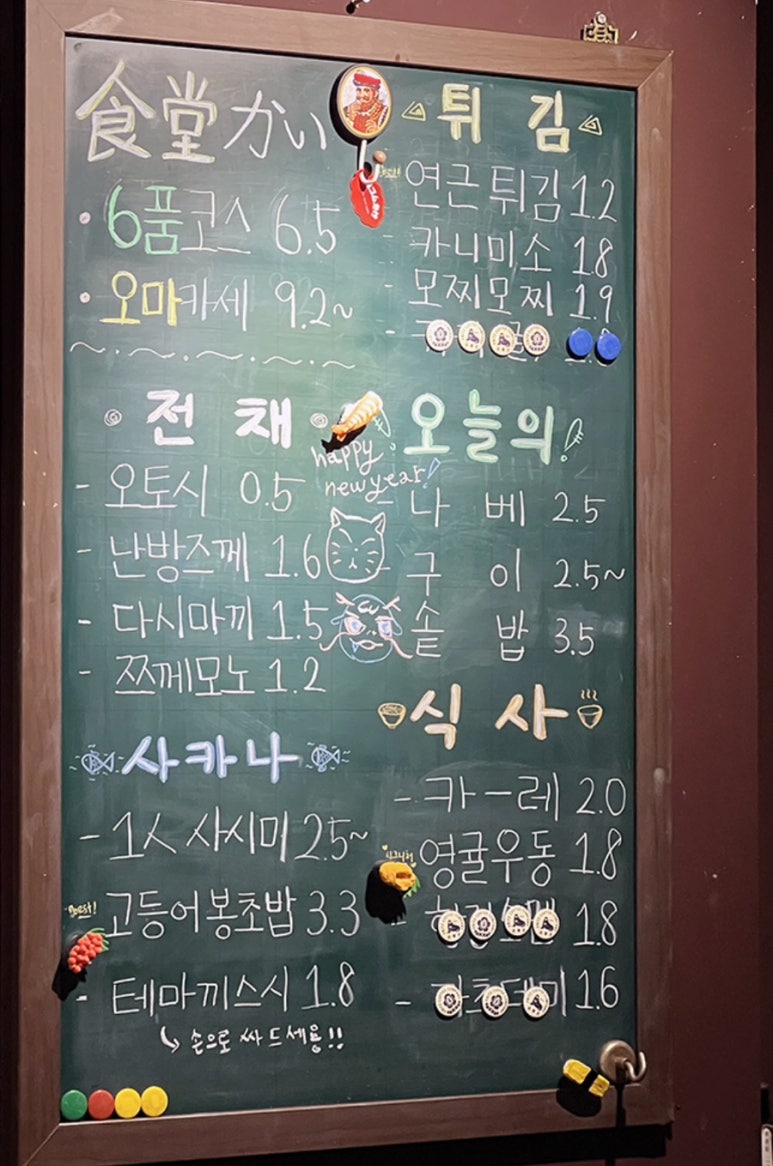 食堂かい
・6품코스 6.5
・오마카세 9.2~
전채
- 오토시 0.5
- 난방즈께 1.6
- 다시마끼 1.5
- 쯔께모노 1.2
happy
new year!
사카나
- 1人 사시미 2.5~
Best!
고등어봉초밥 3.3
- 테마끼스시 1.8
손으로 싸 드세용!!
튀김
연근튀김 1.2
- 카니미소 1.8
- 모찌모찌 1.9
오늘의!
- 나베 2.5
- 구이 2.5~
- 솥밥 3.5
식사
- 카-레 2.0
영귤우동 1.8
- 1.8
- 1.6